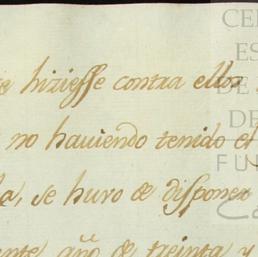 hiziesse contra ellos
no haviendo tenido el
la, se huvo de disponer
ente año de treinta y
CE
ES
DE
DE
FU